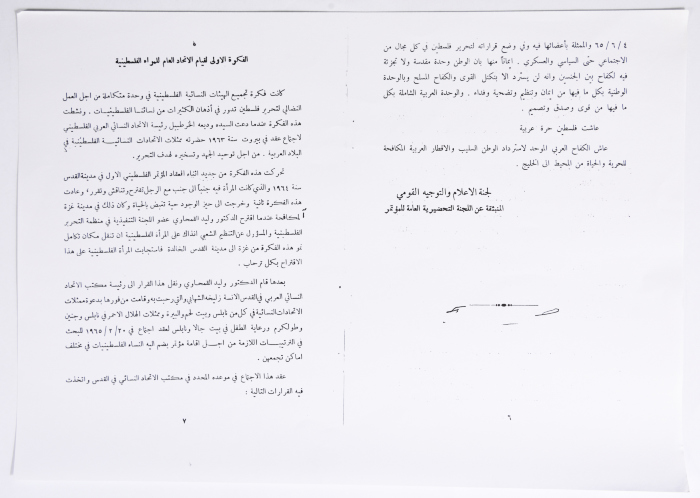 ٤ / ٦ / ٦٥ والممثلة بأعضائها فيه وفي وضع قراراته لتحرير فلسطين في كل مجال من
الاجتماعي حتى السياسي والعسكري . ايماناً منها بان الوطن وحدة مقدسة ولا تجزئة
فيه لكفاح بين الجنسين وانه لن يسترد الا بتكتل القوى والكفاح المسلح وبالوحدة
الوطنية بكل ما فيها من ايمان وتنظيم وتضحية وفداء . والوحدة العربية الشاملة بكل
ما فيها من قوى وصدق وتصميم .
عاشت فلسطين حرة عربية
عاش الكفاح العربي الموحد لاسترداد الوطن السليب والاقطار العربية المكافحة
للحرية والحياة من المحيط الى الخليج .
لجنة الاعلام والتوجيه القومي
المنبثقة عن اللجنة التحضيرية العامة للمؤتمر
٦
الفكرة الاولى لقيام الاتحاد العام للمرأة الفلسطينية
كانت فكرة تجميع الهيئات النسائية الفلسطينية في وحدة متكاملة من اجل العمل
النضالي لتحرير فلسطين تدور في أذهان الكثيرات من نسائنا الفلسطينيات . ونشطت
هذه الفكرة عندما دعت السيده وديعه الخرطبيل رئيسة الاتحاد النسائي العربي الفلسطيني
لاجتماع عقد في بيروت سنة ١٩٦٣ حضرته ممثلات الاتحادات النسائيـــة الفلسطينية في
البلاد العربية . من اجل توحيد الجهد وتسخيره لهدف التحرير .
تحركت هذه الفكرة من جديد اثناء انعقاد المؤتمر الفلسطيني الاول في مدينة القدس
سنة ١٩٦٤ والذي كانت المرأة فيه جنباً الى جنب مع الرجل تقترح وتناقش وتقرر ، وعادت
هذه الفكرة ثانية وخرجت الى حيز الوجود حية تنبض بالحياة وكان ذلك في مدينة غزة
المكافحة عندما اقترح الدكتور وليد القمحاوي عضو اللجنة التنفيذية في منظمة التحرير
الفلسطينية والمسؤول عن التنظيم الشعبي انذاك على المرأة الفلسطينية ان تنقل مكان تكامل
نمو هذه الفكرة من غزة الى مدينة القدس الخالدة فاستجابت المرأة الفلسطينية على هذا
الاقتراح بكل ترحاب .
بعدها قام الدكتور وليد القمحاوي ونقل هذا القرار الى رئيسة مكتب الاتحاد
النسائي العربي في القدس الانسة زليخه الشهابي والتي رحبت به وقامت من فورها بدعوة ممثلات
الاتحادات النسائية في كل من نابلس وبيت لحم والبيرة وممثلات الهلال الاحمر في نابلس وجنين
وطولكرم ورعاية الطفل في بيت جالا ونابلس لعقد اجتماع في ٢٠ / ٢ / ١٩٦٥ للبحث
في الترتيبــات اللازمة من اجـــل اقامة مؤتمر يضم اليه النساء الفلسطينيات في مختلف
اماكن تجمعهن .
عقد هذا الاجتماع في موعده المحدد في مكتب الاتحاد النسائي في القدس واتخذت
فيه القرارات التالية :
٧